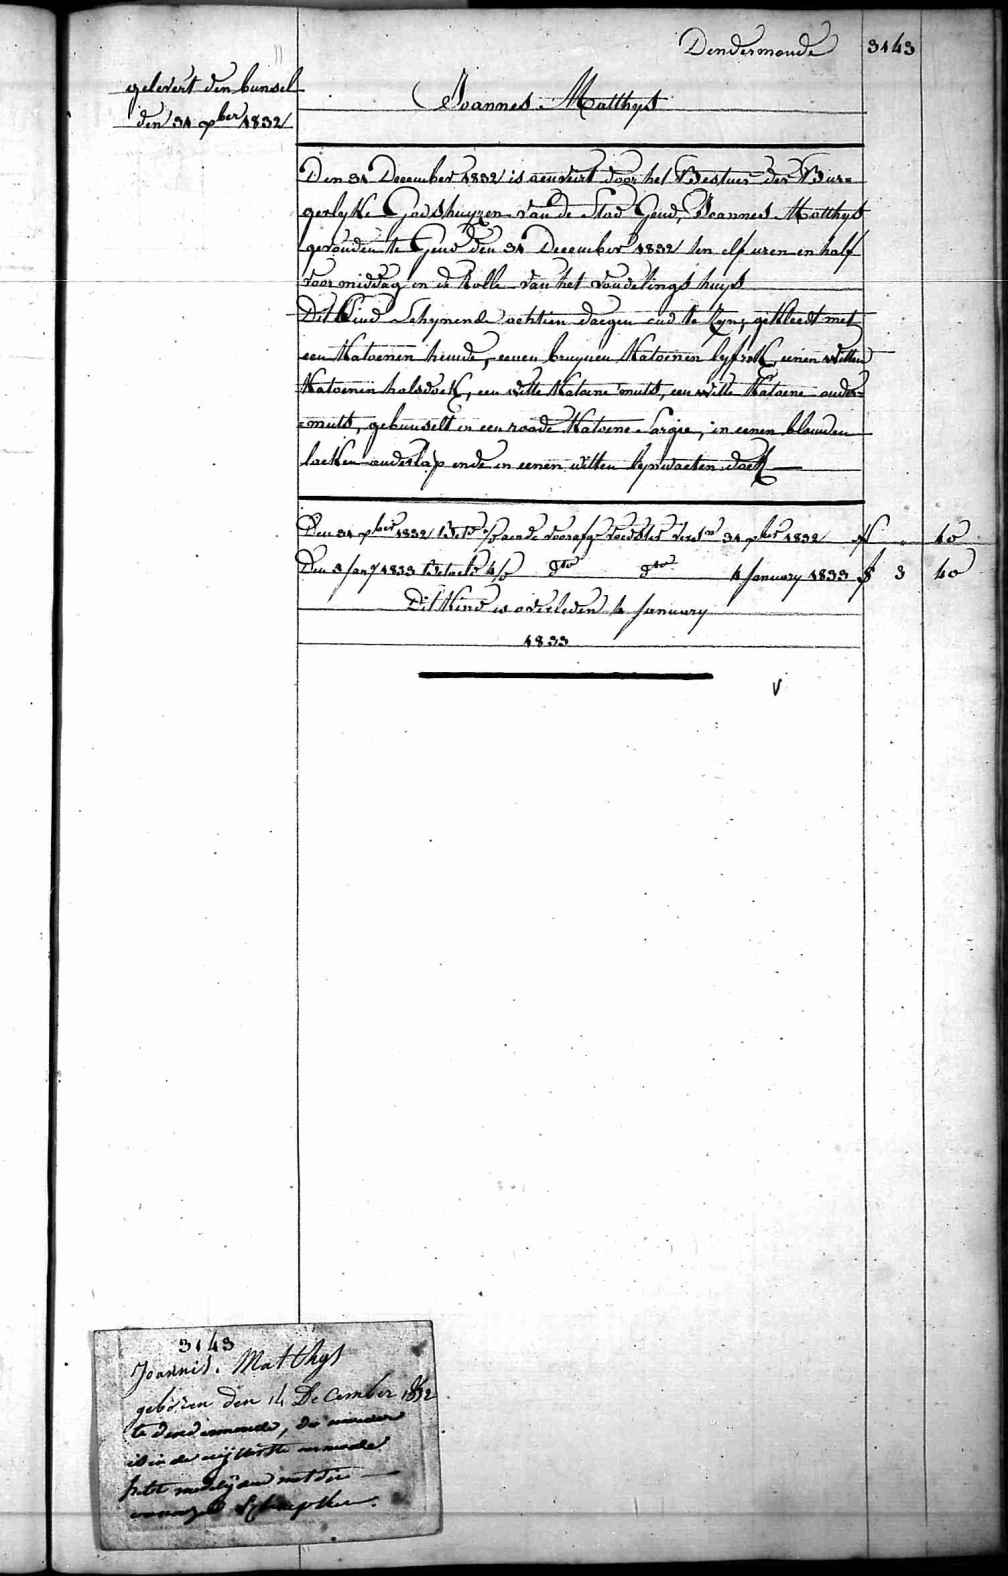 Dendermonde 3143
gelevert den bunsel
den 31 xber 1832
Joannes Matthys
Den 31 December 1832 is aenveirt door het Bestuer der Bur=
gerlyke Godshuyzen van de Stad Gend, Joannes Matthys
gevonden te Gend den 31 December 1832 ten elf uren en half
voor middag in de Rolle van het vondelings huys
Dit Kind schynende achtien daegen oud te zyn, gekleedt met
een Katoenen hemde, eenen bruynen Katoenen lyfrok, eenen witten
Katoenen halsdoek, een witte Katoene muts, een witte Katoene onder=
=muts, gebunselt in een roode Katoene sargie, in eenen blauwen
laeken onderlap ende in eenen witten lynwaeten doek
Den 31 xber 1832 31 xber 1832 f . 40
Den 3 Jany 1833 do do 4 January 1833 f 3 40
Dit Kind is overleden 4 January
1833
v
3143
Joannis. Matthys
geboren den 14 December 1832
te dendermonde, de moeder
is in de uijtterste armoede
hebt medelijden met die